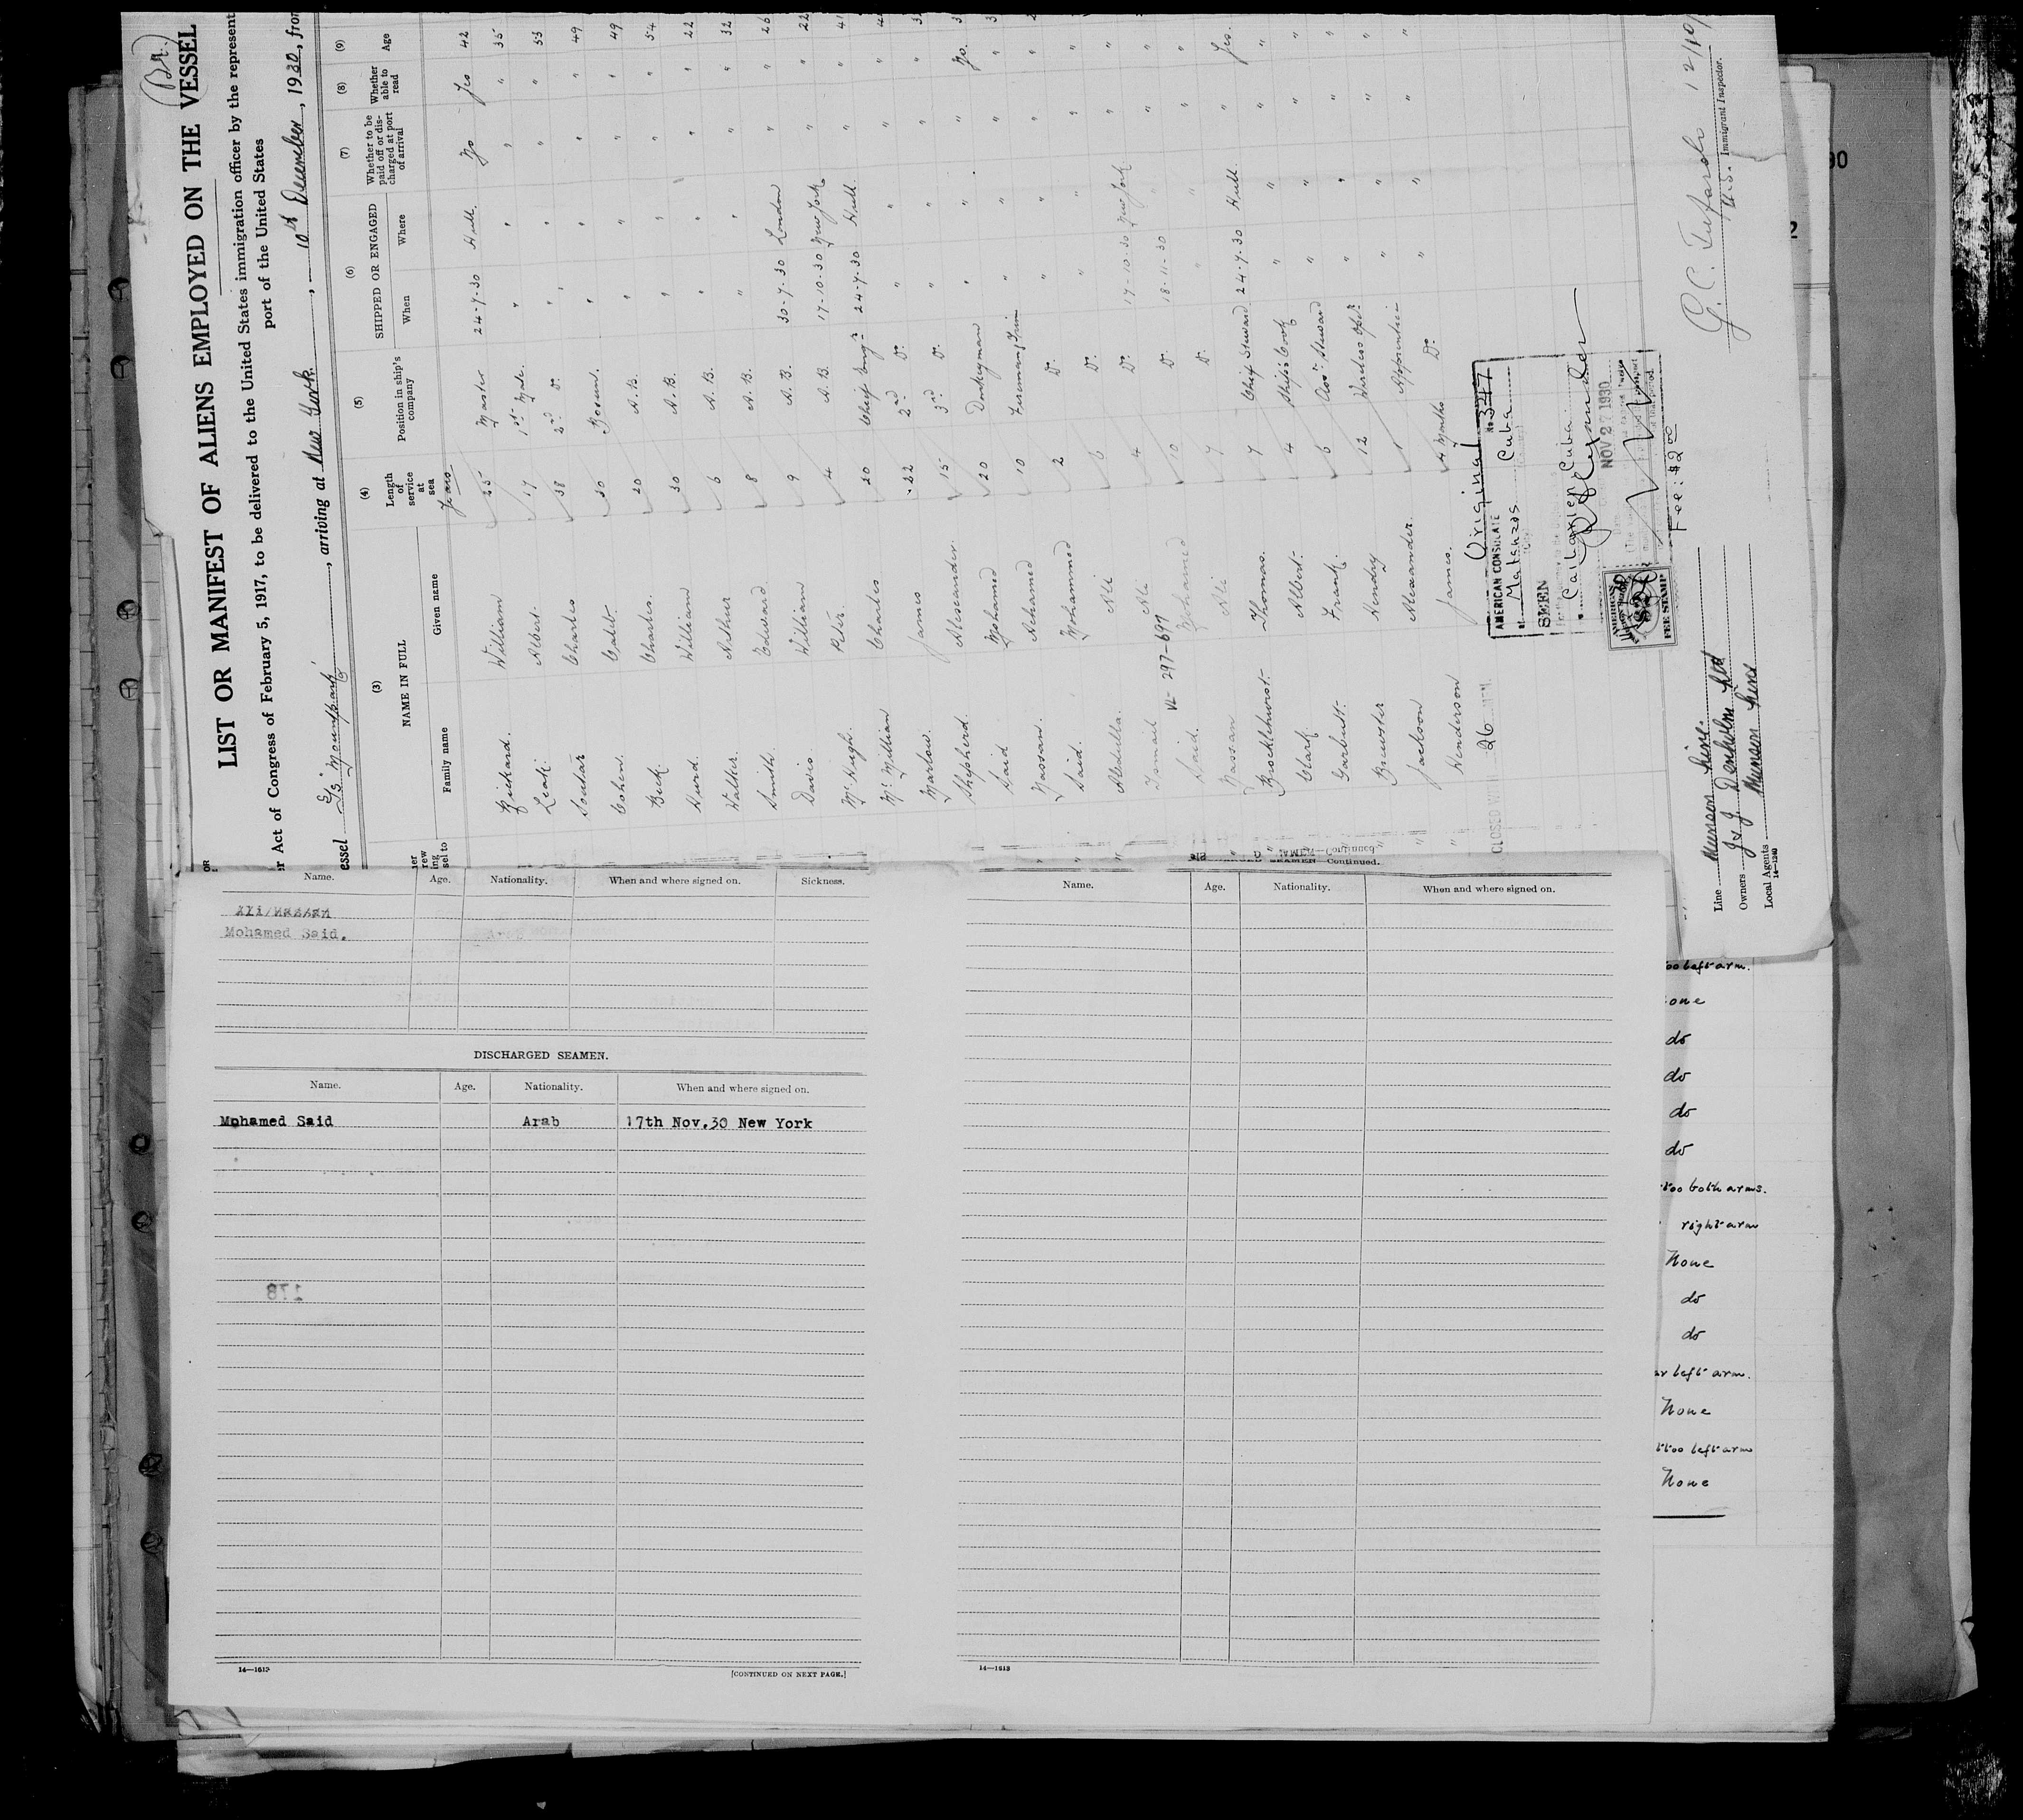 (Br.)
LIST OR MANIFEST OF ALIENS EMPLOYED ON THE VESSEL
er Act of Congress of February 5, 1917, to be delivered to the United States immigration officer by the represent
port of the United States
essel S/S Mountpark, arriving at New York, 10th December, 1930, from
(3) (4) (5) (6) (7) (8) (9)
NAME IN FULL
Family name Given name
Length of service at sea
Position in ship's company
SHIPPED OR ENGAGED
When Where
Whether to be paid off or discharged at port of arrival
Whether able to read
Age
Years
William 25 Master 24-7-30 Hull. No Yes 42
Leach Albert. 17 1st Mate. " " " " 35
Soutar Charles 38 2nd Do. " " " " 53
Cohen. 30 Bosun. " " " " 49
Beck. Charles. 20 A.B. " " " " 49
Hurd. William 30 A.B. " " " " 54
Walker. Arthur 6 A.B. " " " " 22
Smith. Edward. 8 A.B. " " " " 32
Davis. William 9 A.B. 30-7-30 London " " 26
McHugh. Peter. 4 A.B. 17-10-30 New York " " 22
McMillan Charles 20 Chief Engr. 24-7-30 Hull. " " 41
Marlow. James 22 2nd Do. " " " "
Shepherd. Alexander. 15 3rd Do. " " " "
Said Mohamed 20 Donkeyman " " " No.
Hassan. 10 Fireman/Trim " " " "
Said. Mohammed 2 Do. " " " "
Abdulla. Ali 6 Do. " " " "
Ismail Ali 4 Do. 17-10-30 New York " "
VL- 297-697
Said. Mohamed 10 Do. 18-11-30 " " "
Hassan Ali 7 Do.
Brocklehurst- Thomas. 7 Chief Steward 24-7-30 Hull. " Yes.
Clark. Albert- 4 Ship's Cook " " " "
Frank. 6 Asst. Steward " " " "
Brewster Hendry 12 Wireless Optr. " " " "
Jackson Alexander. 1 Apprentice " " " "
Henderson James. 4 Months Do. " " " "
CLOSED WITH 26 MEN.
Original
AMERICAN CONSULATE No. 347
Matanzas Cuba
SEEN
Caibarien, Cuba
NOV 27 1930
AMERICAN
$2
FEE STAMP
Fee: $2.00
Line Munson Line
Owners J & J Denholm Ltd
Local Agents Munson Line
14—1240
12/10/
U.S. Immigrant Inspector.
SEAMEN—Continued.
Name. Age. Nationality. When and where signed on. Sickness.
Ali/Hassan
Mohamed Said.
DISCHARGED SEAMEN.
Name. Age. Nationality. When and where signed on.
Mohamed Said Arab 17th Nov.30 New York
178
14—1613
[CONTINUED ON NEXT PAGE.]
Name. Age. Nationality. When and where signed on.
14—1613
90
2
too left arm.
one
do
do
do
do
too both arms.
right arm
None
do
do
ar left arm.
None
ttoo left arm
None